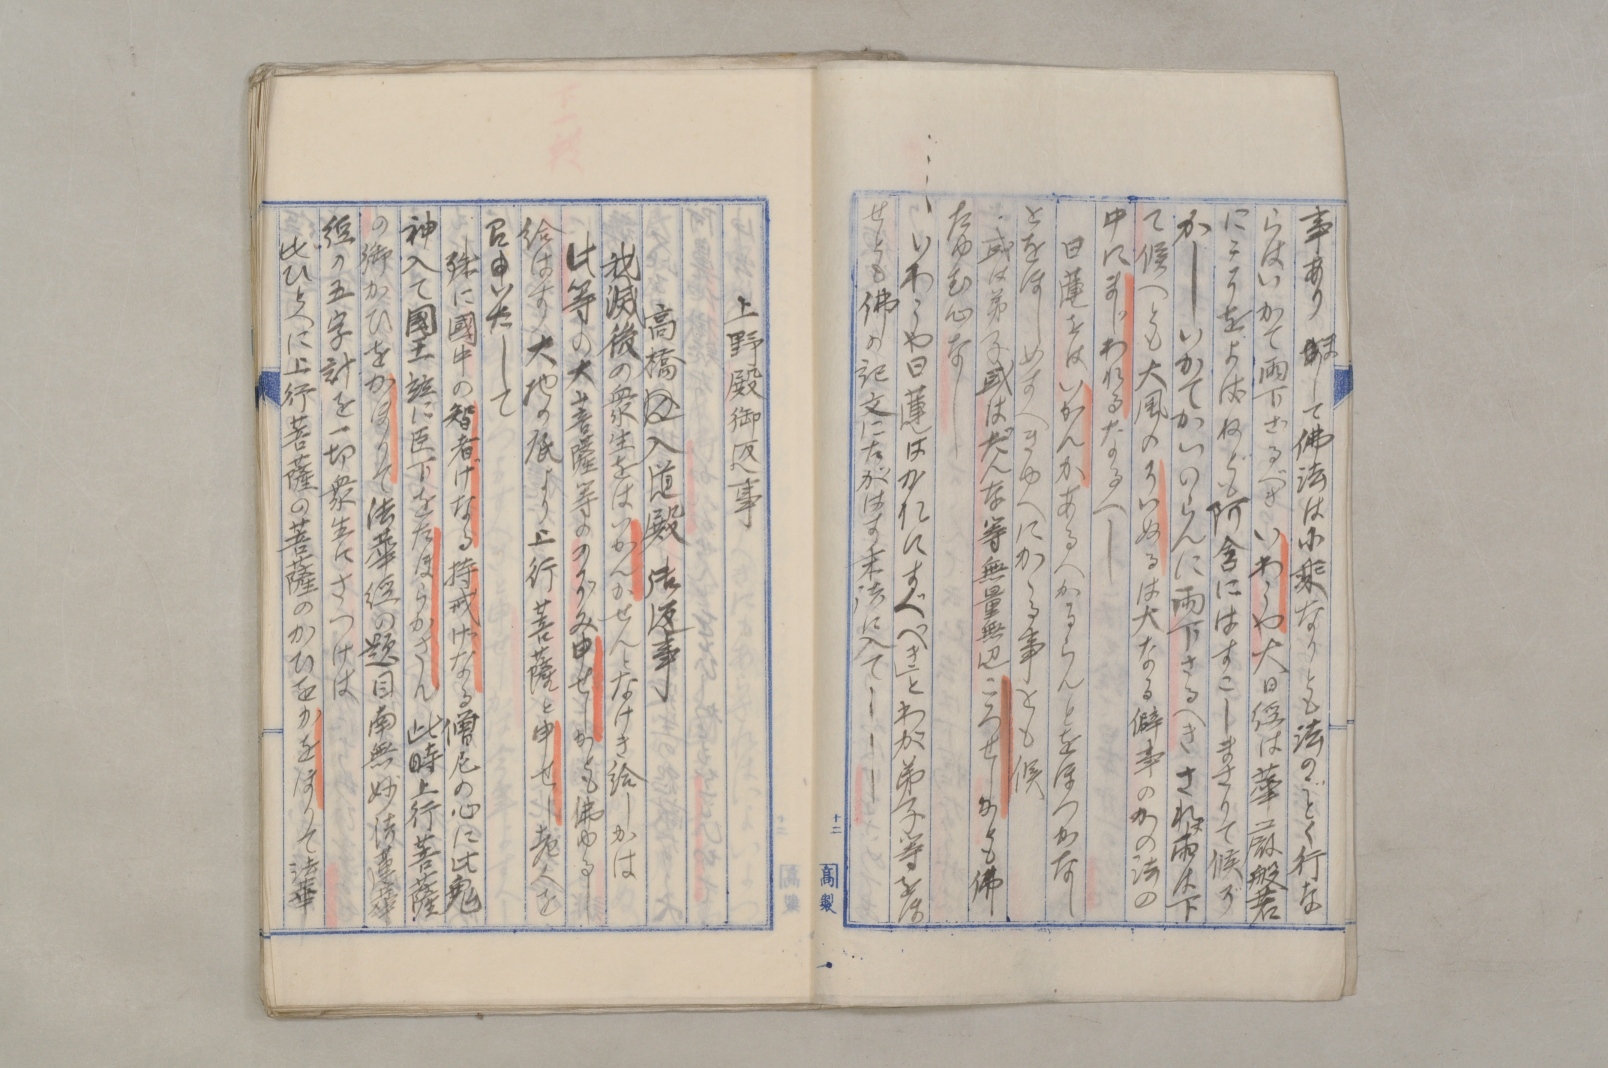 事あり 好して佛法は小乗なりとも法のごとく行な
らはいかて雨下さるべき いわうや大日経は華厳般若
にこそをよはねども阿含にはすこしまさりて候ぞ
かし―いかてかいのらんに雨下さるへき されは雨は下
て候へとも大風のそいぬるは大なる僻事のかの法の
中にましわれるなるへし
日蓮をはいかんかあるへかるらんとをほつかなし
とをほしめすへきゆへにかゝる事とも候
、或は弟子或はだんな等無量無辺ころせしかとも佛
たゆむ心なし
、いわうや日蓮はかれにすぐべきとわが弟子等をほ
せとも佛の記文にたがはす末法に入て――――
十二
高製
上野殿御返事
高橋入道殿御返事
我滅後の衆生をはいかんかせんとなけき給しかは
此等の大菩薩等ののそみ申せしかとも佛ゆる
給はす 大地の底より上行菩薩と申せし老人を
召出いたして
殊に國中の智者げなる持戒げなる僧尼の心に此鬼
神入て國王並に臣下をたほらかさん 此時上行菩薩
の御かひをかほりて法華経の題目南無妙法蓮華
経の五字計を一切衆生にさつけは
此ひとへに上行菩薩の菩薩のかひをかをほりて法華